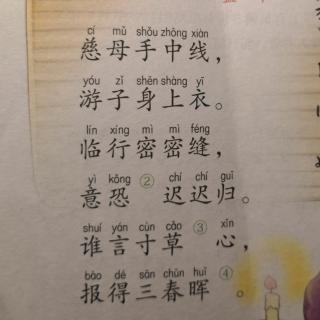 cí mǔ shǒu zhōng xiàn
慈母手中线，
yóu zǐ shēn shàng yī
游子身上衣。
lín xíng mì mì féng
临行密密缝，
yì kǒng chí chí guī
意恐②迟迟归。
shuí yán cùn cǎo xīn
谁言寸草③心，
bào dé sān chūn huī
报得三春晖④。